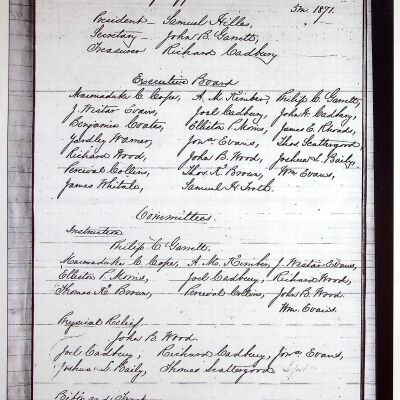 5m 1871.
President – Samuel Hilles,
Secretary – John B. Garrett,
Treasurer Richard Cadbury
Executive Board
Marmaduke C. Cope, A. M. Kimber, Philip C. Garrett,
J. Wistar Evans, Joel Cadbury, John W. Cadbury,
Benjamin Coates, Elliston P. Morris, James E. Rhoads,
Yardley Warner, Jona Evans, Thos Scattergood,
Richard Wood, John B. Wood, Joshua L. Baily,
Percival Collins, Thos. K. Brown, Wm Evans,
James Whitall, Samuel H.
Committees.
Instruction
Philip C. Garrett.
Marmaduke C. Cope, A. M. Kimber, J. Wistar Evans,
Elliston P. Morris, Joel Cadbury, Richard Wood,
Thomas K. Brown, Percival Collins, John B. Wood.
Wm. Evans.
Physical Relief.
John B. Wood.
Joel Cadbury, Richard Cadbury, Jona Evans,
Joshua L. Baily, Thomas Scattergood